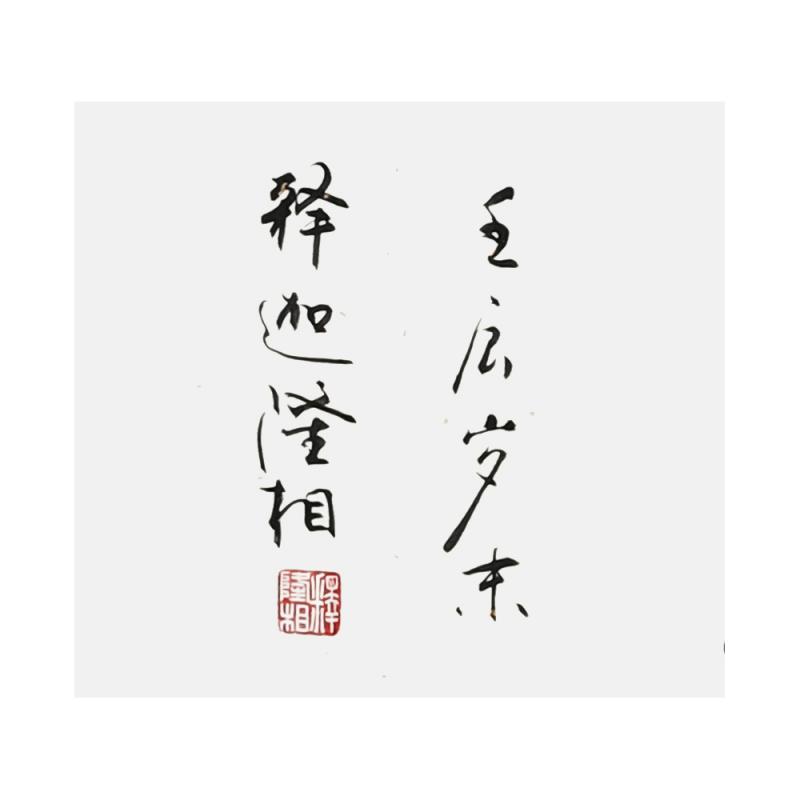 壬辰岁末
释迦隆相
释隆相